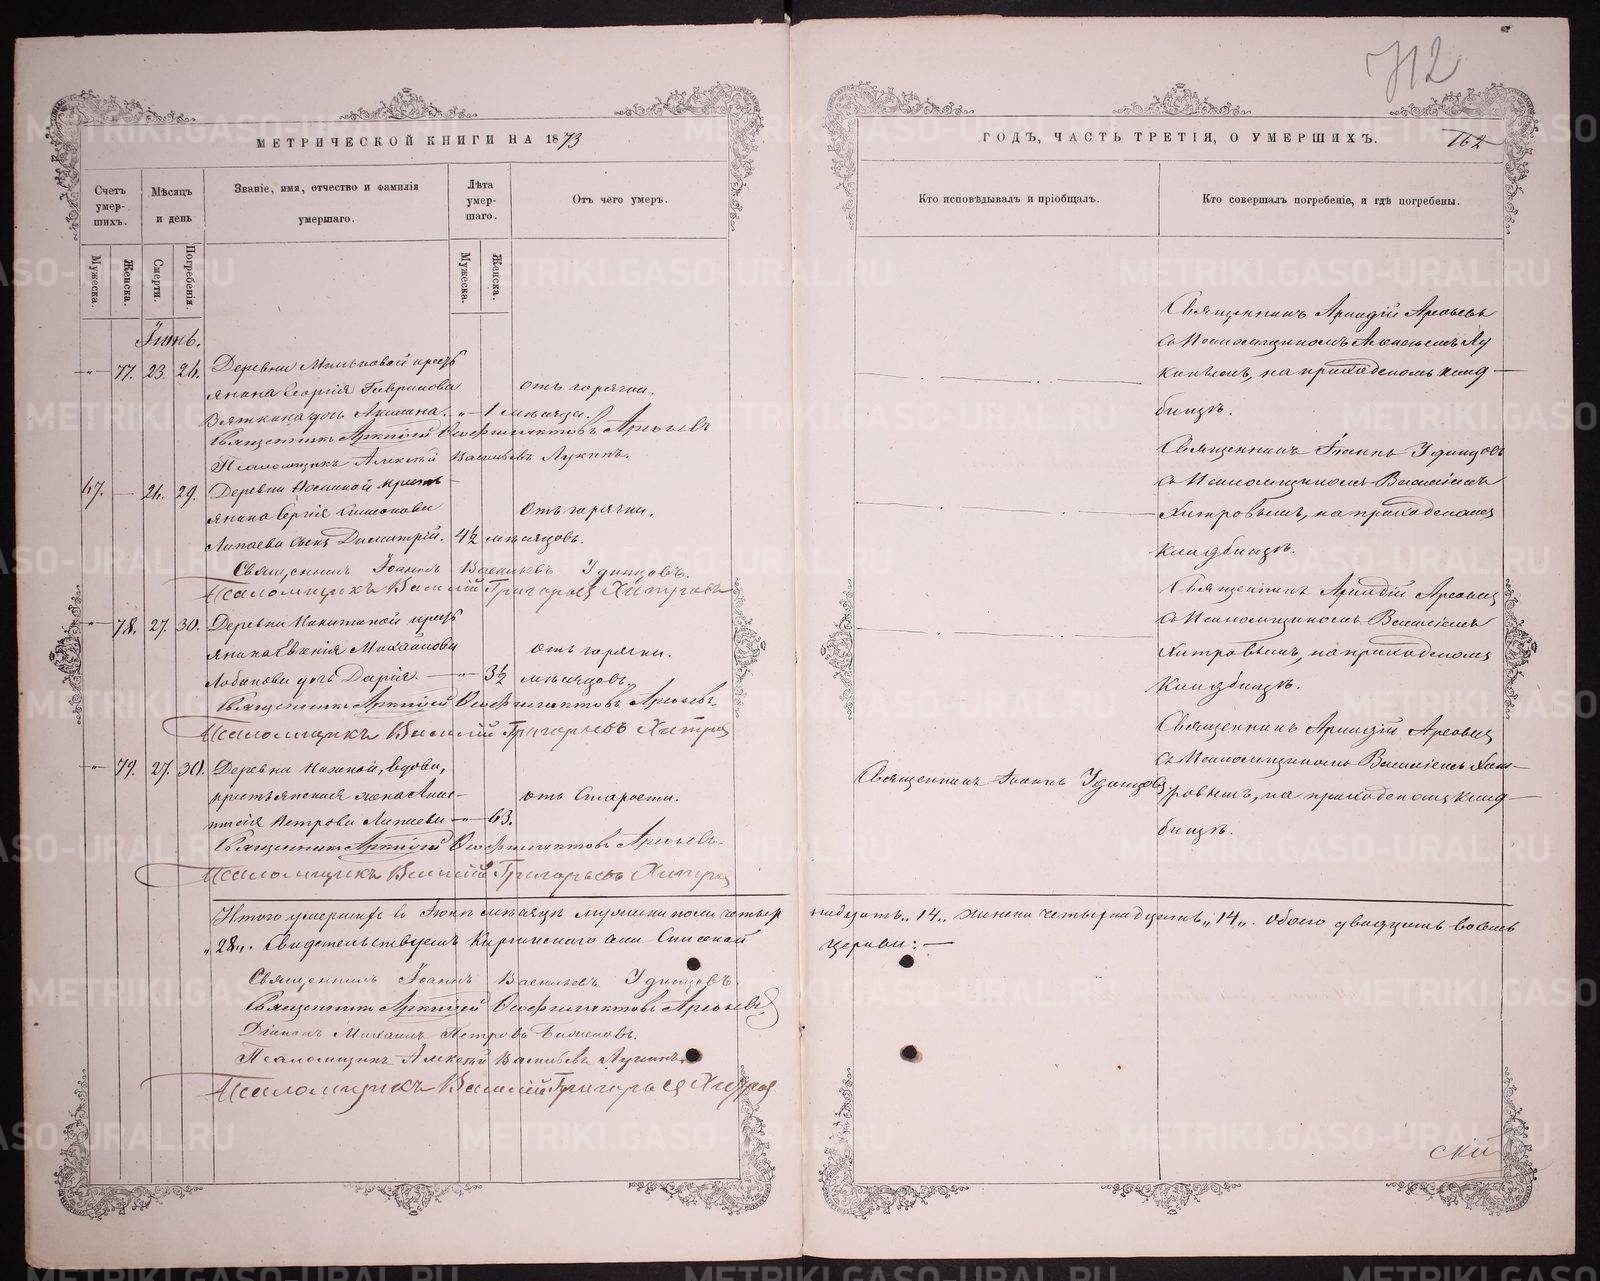 712
МЕТРИЧЕСКОЙ КНИГИ НА 1873
ГОДЪ, ЧАСТЬ ТРЕТІЯ, О УМЕРШИХЪ.
162
Счетъ умер-шихъ.
Мѣсяцъ и день
Званіе, имя, отчество и фамилія умершаго.
Лѣта умер-шаго.
Отъ чего умеръ.
Кто исповѣдывалъ и пріобщалъ.
Кто совершалъ погребеніе, и гдѣ погребены.
Мужеска.
Женска.
Смерти.
Погребенія.
Мужеска.
Женска.
Іюнь.
77. 23. 26.
Деревни Мильковой кресть
янина Георгія Гаврилова
Вяткина дочь Акилина. 1 мѣсяца.
отъ горячки.
Священникъ Аркадій Феофилактовъ Арефьевъ
Псаломщикъ Алексѣй Васильевъ Лукинъ.
Священникъ Аркадій Арефьевъ
съ Псаломщикомъ Алексѣемъ Лу
кинымъ, на приходскомъ клад
бищѣ.
67. 26. 29.
янина Сергія Симонова
Липаева сынъ Димитрій. 4½ мѣсяцовъ.
Отъ горячки.
Священникъ Іоаннъ Васильевъ Удинцовъ.
Псаломщикъ Василій Григорьевъ Хитровъ
Священникъ Іоаннъ Удинцовъ
съ Псаломщикомъ Василіемъ
Хитровымъ, на приходскомъ
кладбищѣ.
78. 27. 30.
Деревни Никитиной кресть
янина Евгенія Михайлова
Лобанова дочь Дарія. 3½ мѣсяцовъ.
отъ горячки.
Священникъ Аркадій Феофилактовъ Арефьевъ
Псаломщикъ Василій Григорьевъ Хитровъ
Священникъ Аркадій Арефьевъ
съ Псаломщикомъ Василіемъ
Хитровымъ, на приходскомъ
кладбищѣ.
79. 27. 30.
вдова,
крестьянская жена Анас-
тасія Петрова Липаева 63.
отъ Старости.
Священникъ Аркадій Феофилактовъ Арефьевъ
Псаломщикъ Василій Григорьевъ Хитровъ
Священникъ Іоаннъ Удинцовъ
Священникъ Аркадій Арефьевъ
съ Псаломщикомъ Василіемъ Хит-
ровымъ, на приходскомъ клад-
бищѣ.
Итого умершихъ въ Іюнѣ мѣсяцѣ мужеска пола четыр
надцать „14„ женска четырнадцать „14„. обоего двадцать восемь
„28„. Свидѣтельствуемъ Киргинскаго села Спасской
церкви: —
Священникъ Іоаннъ Васильевъ Удинцовъ.
Священникъ Аркадій Феофилактовъ Арефьевъ
Діаконъ Михаилъ Петровъ
Псаломщикъ Алексѣй Васильевъ Лукинъ
Псаломщикъ Василій Григорьевъ Хитровъ
ской
METRIKI.GASO-URAL.RU